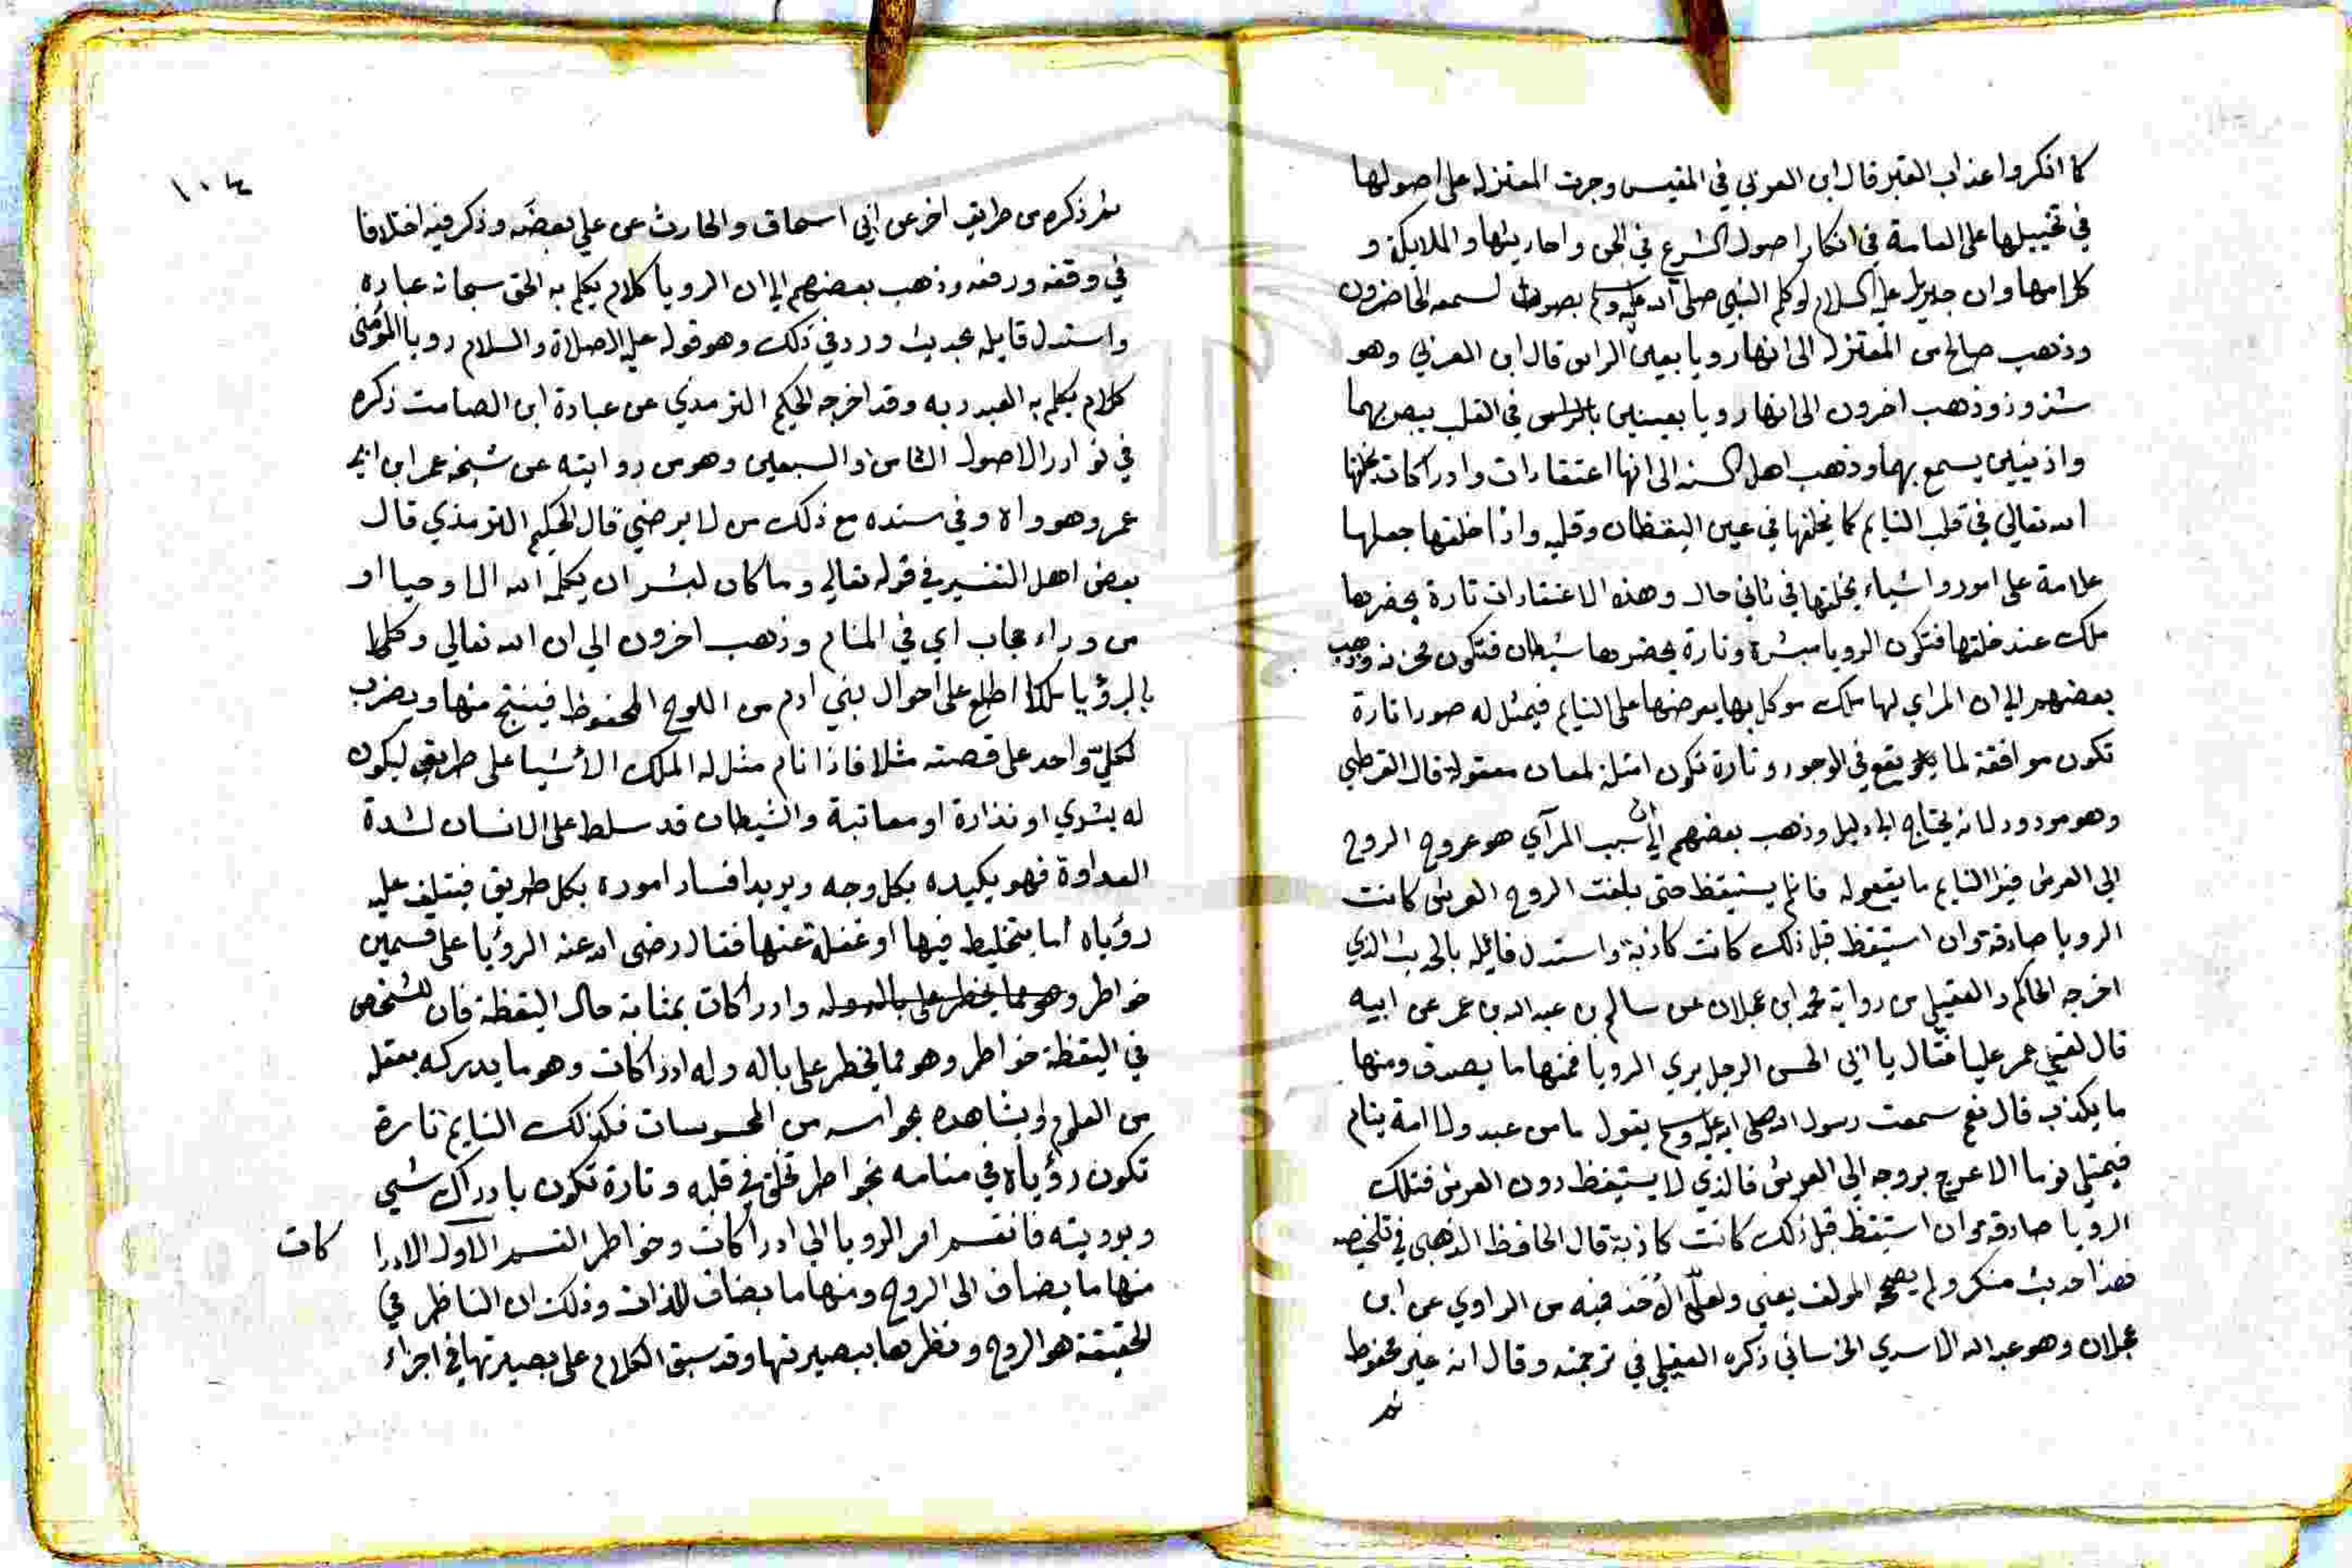 كما انكروا عذاب القبر قال ابن العربي في القبس وجرت المعتزلة على اصولها
في تخييلها على العامة في انكار اصول الشرع في الجن واحاديثها والملايكة و
كلامها وان جبريل عليه السلام لو كلم النبي صلى الله عليه وسلم بصوت لسمعه الحاضرون
وذهب صالح من المعتزلة الى انها رويا بعين الراس قال ابن العربي وهو
شذوذ وذهب اخرون الى انها رويا بعينين في القلب يبصر بهما
واذنيين يسمع بهما وذهب اهل السنة الى انها اعتقادات وادراكات يخلقها
الله تعالي في قلب النايم كما يخلقها في عين اليقظان وقلبه واذا خلقها جعلها
علامة على امور واشياء يخلقها في ثاني حال وهذه الاعتقادات تارة يحضرها
ملك عند خلقها فتكون الرويا مبشرة وتارة يحضرها شيطان فتكون محزنة وذهب
بعضهم الي ان المراي لها ملك موكل بها يعرضها على النايم فيمثل له صورا تارة
تكون موافقة لما يقع في الوجود وتارة تكون امثلة لمعان معقولة قال القرطبي
وهو مردود لانه يحتاج الي دليل وذهب بعضهم الي ان سبب المرآي هو عروج الروح
الي العرش فيرا النايم ما يقع له فان لم يستيقظ حتى بلغت الروح العرش كانت
الرويا صادقة وان استيقظ قبل ذلك كانت كاذبة واستدل قائله بالحديث الذي
اخرجه الحاكم والعقيلي من رواية محمد ابن عجلان عن سالم بن عبد الله بن عمر عن ابيه
قال لقي عمر عليا فقال يا ابي الحسن الرجل يري الرويا فمنها ما يصدق ومنها
ما يكذب قال نعم سمعت رسول الله صلى الله عليه وسلم يقول ما من عبد ولا امة ينام
فيمتلي نوما الا عرج بروحه الي العرش فالذي لا يستيقظ دون العرش فتلك
الرويا صادقة وان استيقظ قبل ذلك كانت كاذبة قال الحافظ الذهبي في تلخيصه
هذا حديث منكر ولم يصححه المولف يعني ولعلّ الأخذ فيه من الراوي عن ابن
عجلان وهو عبد الله الاسدي الخرساني ذكره العقيلي في ترجمته وقال انه غير محفوظ
ثم
١٠٤
ثم ذكره من طريق اخر عن ابي اسحاق والحارث عن علي بعضه وذكر فيه اختلافا
في وقفه ورفعه وذهب بعضهم الي ان الرويا كلام يكلم به الحق سبحانه عباده
واستدل قايله بحديث ورد في ذلك وهو قوله عليه الصلاة والسلام رويا المؤمن
كلام يكلم به العبد ربه وقد اخرجه الحكيم الترمذي عن عبادة ابن الصامت ذكره
في نوادر الاصول الثامن والسبعين وهو من روايته عن شيخه عمر ابن ابي
عمر وهو واه وفي سنده مع ذلك من لا يرضي قال الحكيم الترمذي قال
بعض اهل التفسير في قوله تعالي وما كان لبشر ان يكلمه الله الا وحيا او
من وراء حجاب اي في المنام وذهب اخرون الي ان الله تعالي وكل
بالرؤيا ملكا اطلع على احوال بني ادم من اللوح المحفوظ فينتج منها ويضرب
لكلّ واحد على قصته مثلا فاذا نام مثل له الملك الأشيا على طريق ليكون
له بشري او نذارة او معاتبة والشيطان قد سلط على الانسان لشدة
العداوة فهو يكيده بكل وجه ويريد افساد اموره بكل طريق فيتلف عليه
رؤياه اما بتخليط فيها او غفلة عنها فقال رضى الله عنه الرؤيا على قسمين
خواطر وهو مما يخطر على باله وله وادراكات بمثابة حال اليقظة فان للشخص
في اليقظة خواطر وهو مما يخطر على باله وله ادراكات وهو ما يدركه بعقله
من العلوم او يشاهده بحواسه من المحسوسات فكذلك النايم تارة
تكون رؤياه في منامه بخواطر تخلق في قلبه وتارة تكون بادراك شيي
وبوديته فانقسم امر الرويا الي ادراكات وخواطر القسم الاول الادرا
كات
منها ما يضاف الى الروح ومنها ما يضاف للذات وذلك ان الناظر في
الحقيقة هو الروح ونظرها ببصيرتها وقد سبق الكلام على بصيرتها في اجزاء